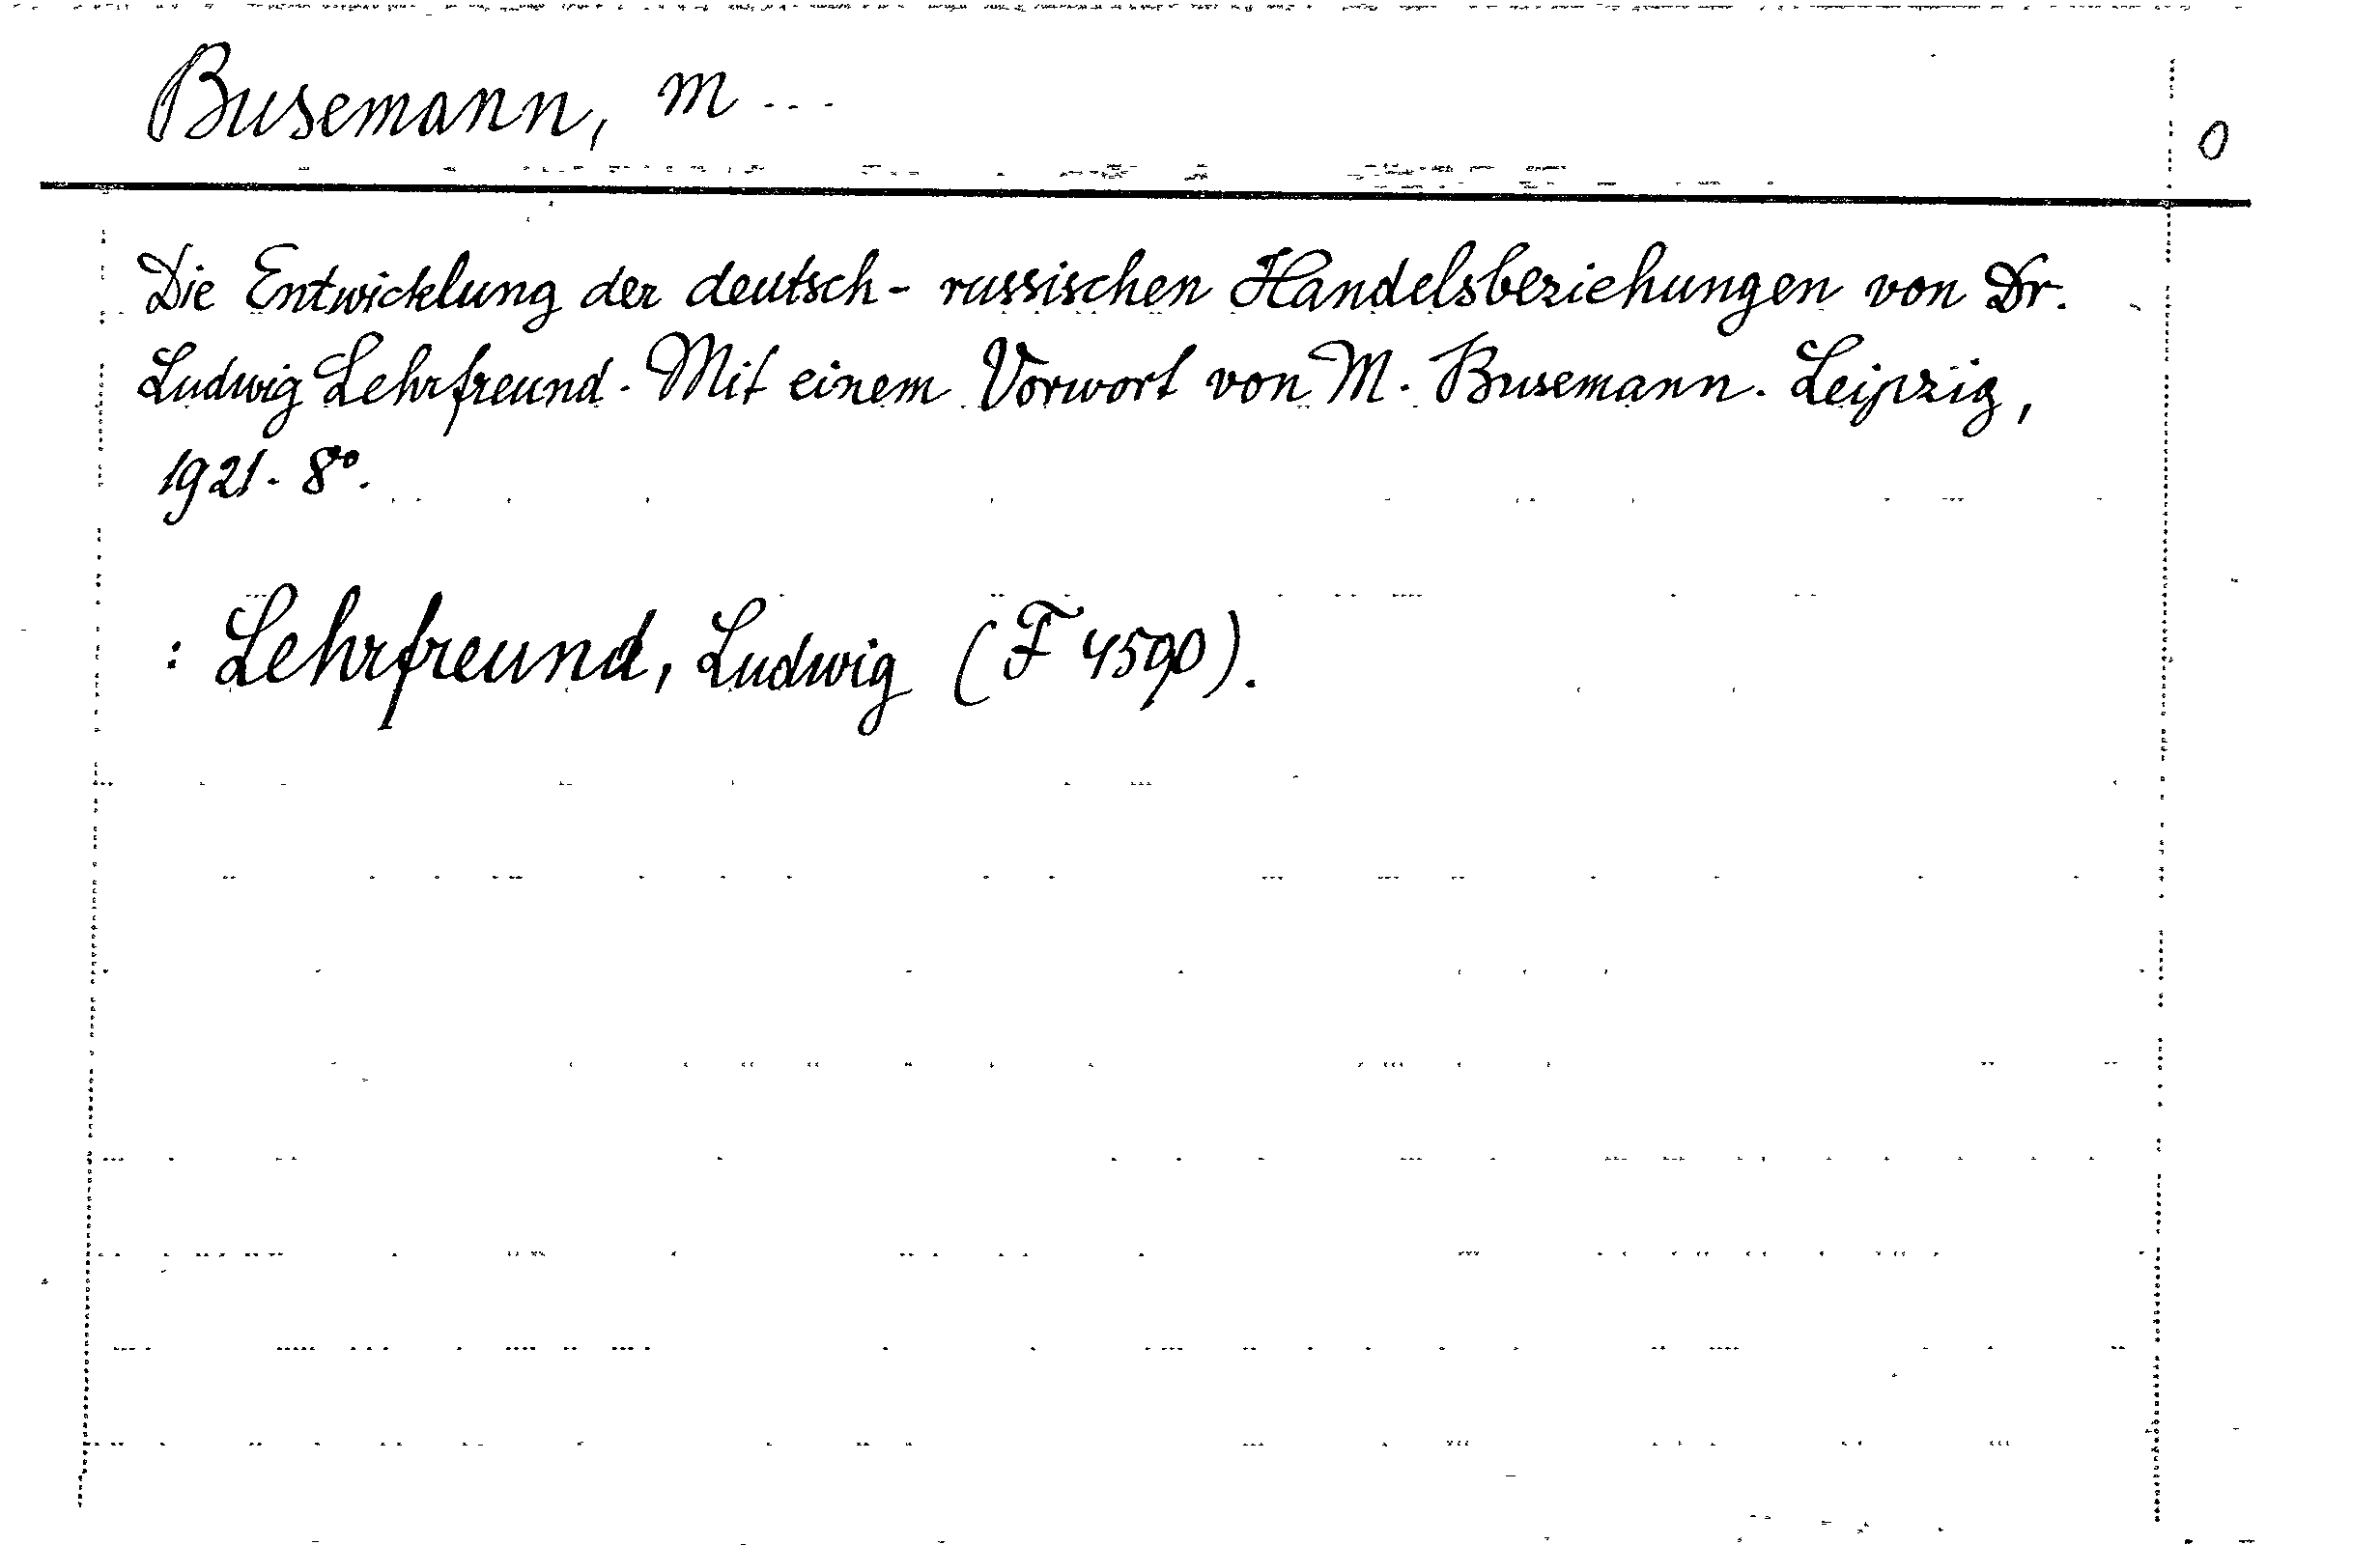 Busemann, M...
0
Die Entwicklung der deutsch-russischen Handelsbeziehungen von Dr.
Ludwig Lehrfreund. Mit einem Vorwort von M. Busemann. Leipzig,
1921. 8°.
: Lehrfreund, Ludwig (F 4590).